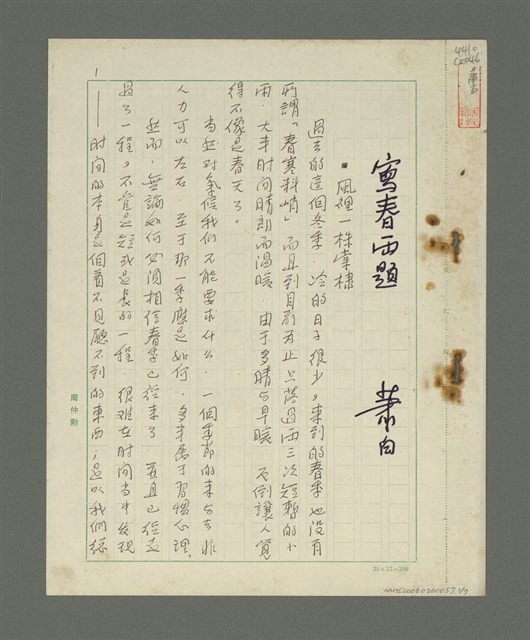 寫春兩題
蕭白
風裡一株棠棣
過去的這個冬季,冷的日子很少。來到的春季也沒有
所謂「春寒料峭」而且到目前為止只落過兩三次短暫的小
雨,大半时间晴朗而温暖,由于多晴与早暖,反倒讓人覚
得不像是春天了。
当然对氣候我们不能要求什么,一個季節的来与去非
人力可以左右,至于那一季應是如何,多半属于習慣心理。
然而,無論如何必須相信春季已经来了,而且已经走
過了一程,不管是短或是長的一程,很难在时间当中发現
——时间的本身是個看不見聽不到的東西,是以我们総
1
周仲勳
25×12=300
NMTL20060260057 1/7